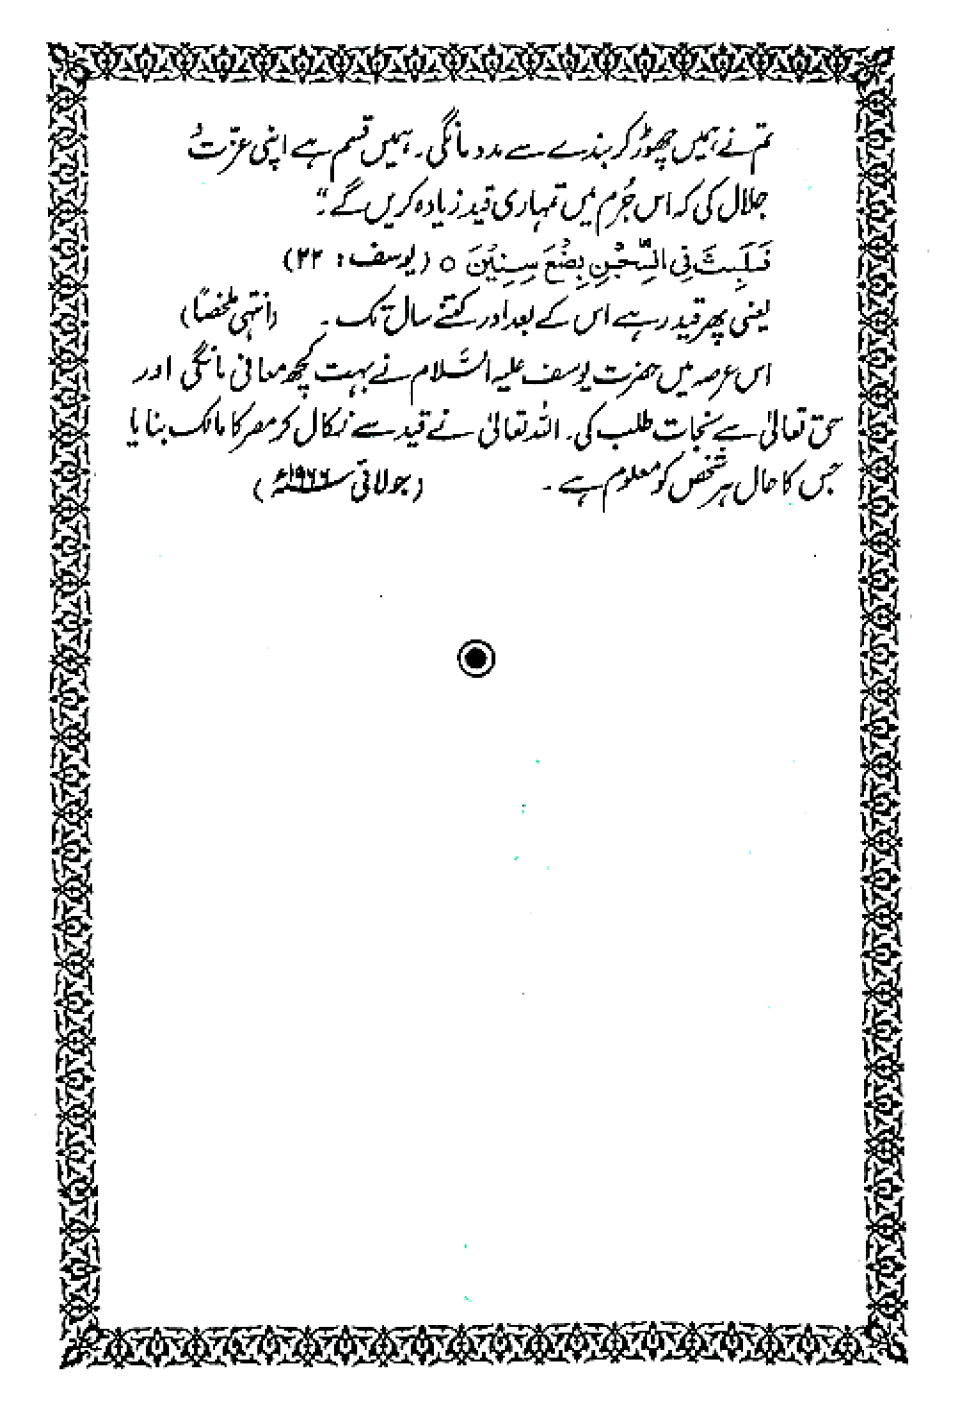 تم نے ہمیں چھوڑ کر بندے سے مدد مانگی۔ ہمیں قسم ہے اپنی عزّت و
جلال کی کہ اس جُرم میں تمہاری قید زیادہ کریں گے۔"
فَلَبِثَ فِی السِّجْنِ بِضْعَ سِنِیْنَ ○ (یوسف : ۴۲)
یعنی پھر قید رہے اس کے بعد اور کتنے سال تک ۔ (انتہی ملخصاً)
اس عرصہ میں حضرت یوسف علیہ السَّلام نے بہت کچھ معافی مانگی اور
حق تعالیٰ سے نجات طلب کی۔ اللہ تعالیٰ نے قید سے نکال کر مصر کا مالک بنایا
جس کا حال ہر شخص کو معلوم ہے ۔ (جولائی ۱۹۶۶ء)